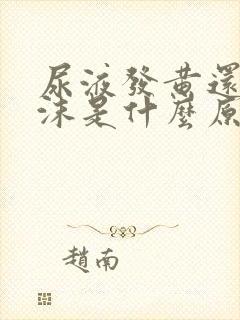 尿液發黃還
沫是什麼原
趙南